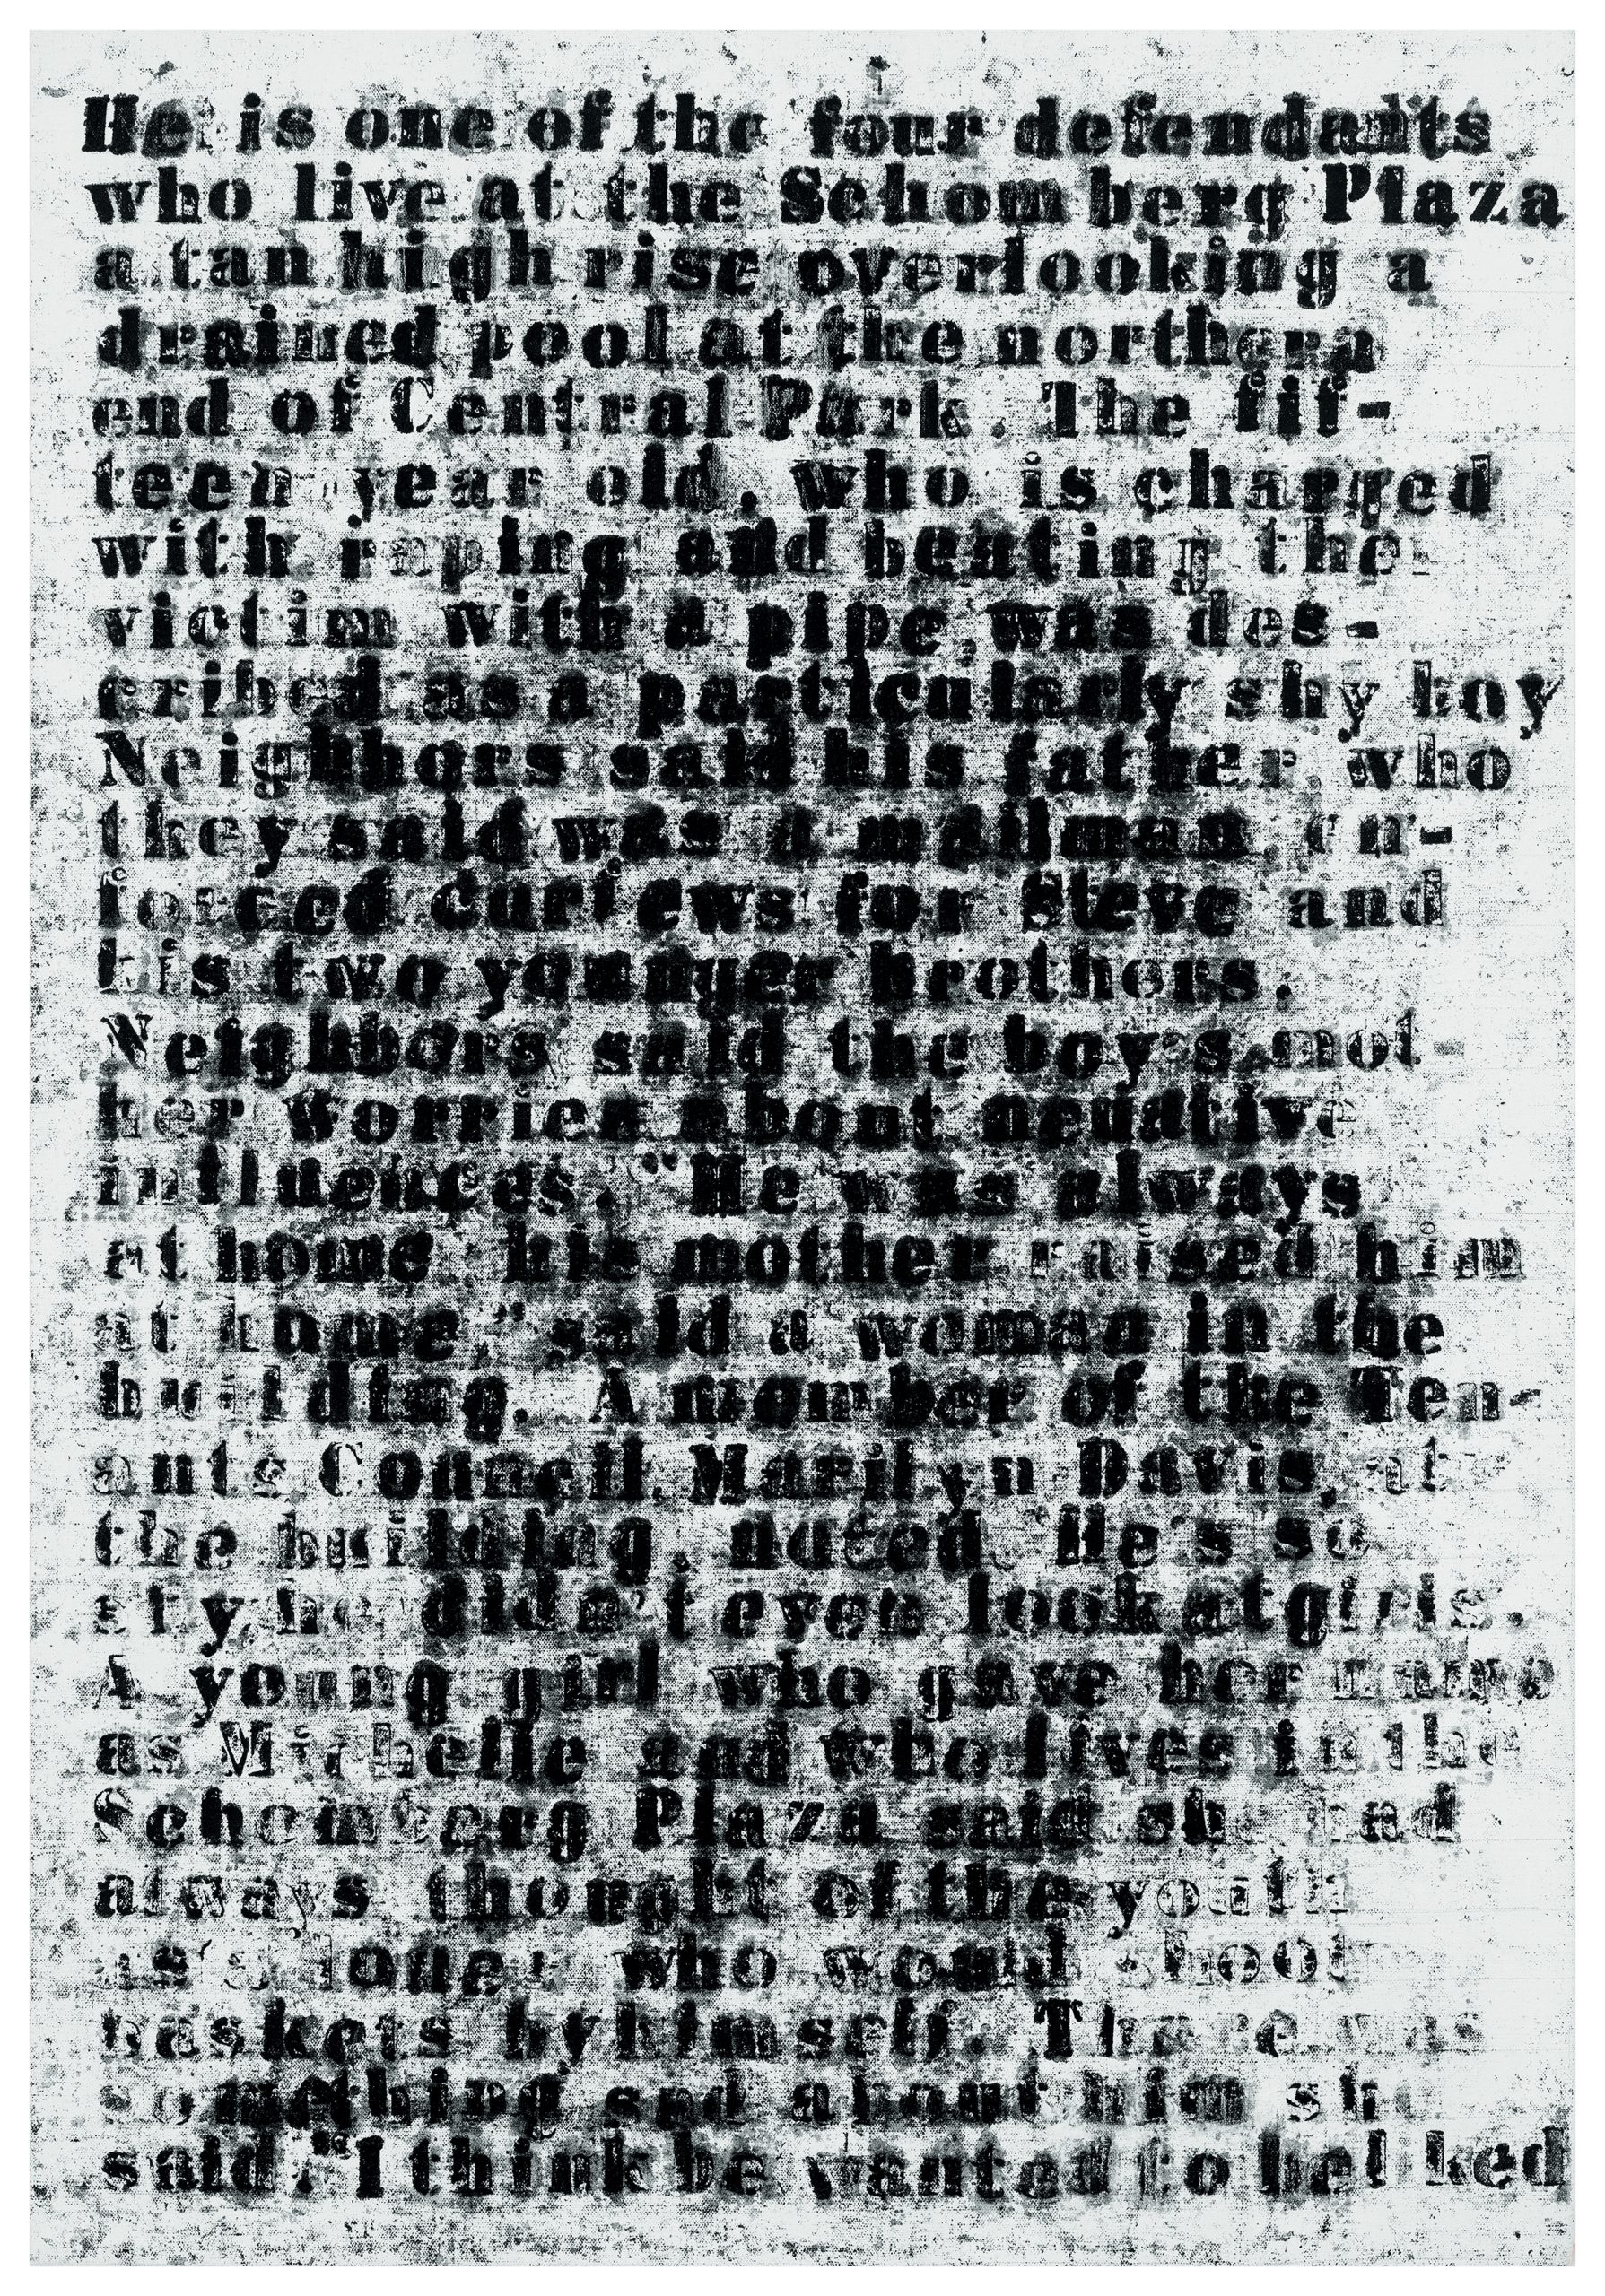 He is one of the four defendants
who live at the Schomberg Plaza
a tan high rise overlooking a
drained pool at the northern
end of Central Park. The fif-
teen year old, who is charged
with raping and beating the
victim with a pipe, was des-
cribed as a particularly shy boy
Neighbors said his father, who
they said was a mailman, en-
forced curfews for Steve and
his two younger brothers.
Neighbors said the boy's mot-
her worries about negative
influences. "He was always
at home, his mother raised him
at home," said a woman in the
building. A member of the Ten-
ants Connell, Marilyn Davis, at
the building, noted, "He's so
shy he didn't even look at girls.
A young girl who gave her name
as Michelle and who lives in the
Schomberg Plaza said she had
always thought of the youth
as a loner who would shoot
baskets by himself. There was
something sad about him she
said. "I think he wanted to be liked